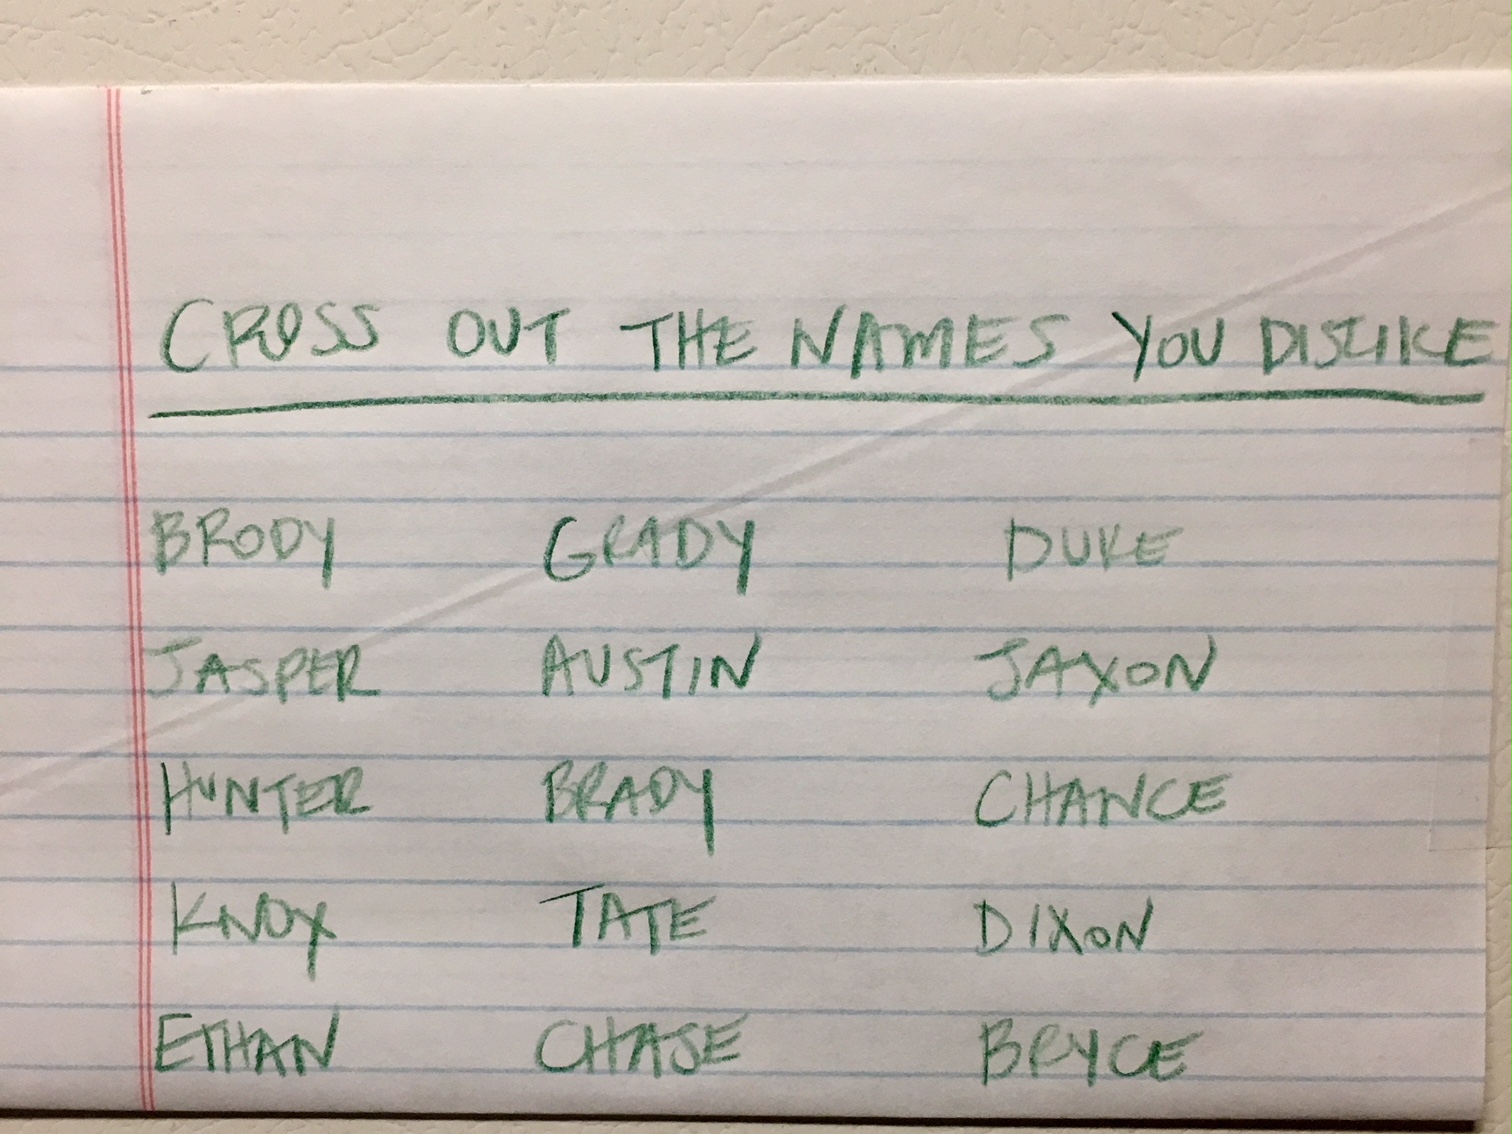 CROSS OUT THE NAMES YOU DISLIKE
BRODY GRADY DUKE
JASPER AUSTIN JAXON
HUNTER BRADY CHANCE
KNOX TATE DIXON
ETHAN CHASE BRYCE